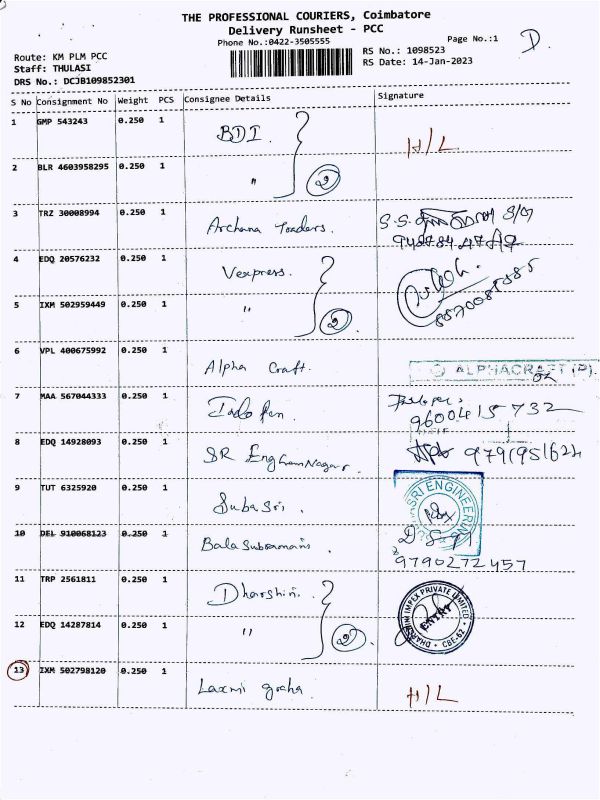 THE PROFESSIONAL COURIERS, Coimbatore
Delivery Runsheet - PCC
Phone No.:0422-3505555 Page No.:1 D.
Route: KM PLM PCC RS No.: 1098523
Staff: THULASI RS Date: 14-Jan-2023
DRS No.: DCJB109852301
S No Consignment No Weight PCS Consignee Details Signature
1 GMP 543243 0.250 1 BDI. H/L
2 BLR 4603958295 0.250 1 " 2
3 TRZ 30008994 0.250 1 Archana Traders. S.S.
4 EDQ 20576232 0.250 1 Vexpress.
5 IXM 502959449 0.250 1 " 2
6 VPL 400675992 0.250 1 Alpha Craft. ALPHACRAFT (P).
7 MAA 567044333 0.250 1 9600415732
8 EDQ 14928093 0.250 1 SR 9791951622
9 TUT 6325920 0.250 1 Suba Sri. SRI ENGINEERING
10 DEL 910068123 0.250 1 Bala Subramani.
9790272457
11 TRP 2561811 0.250 1 Dharshini. DHARSHINI IMPEX PRIVATE LIMITED
12 EDQ 14287814 0.250 1 " 2 ENTRY CBE-62
13 IXM 502798120 0.250 1 Laxmi H/L